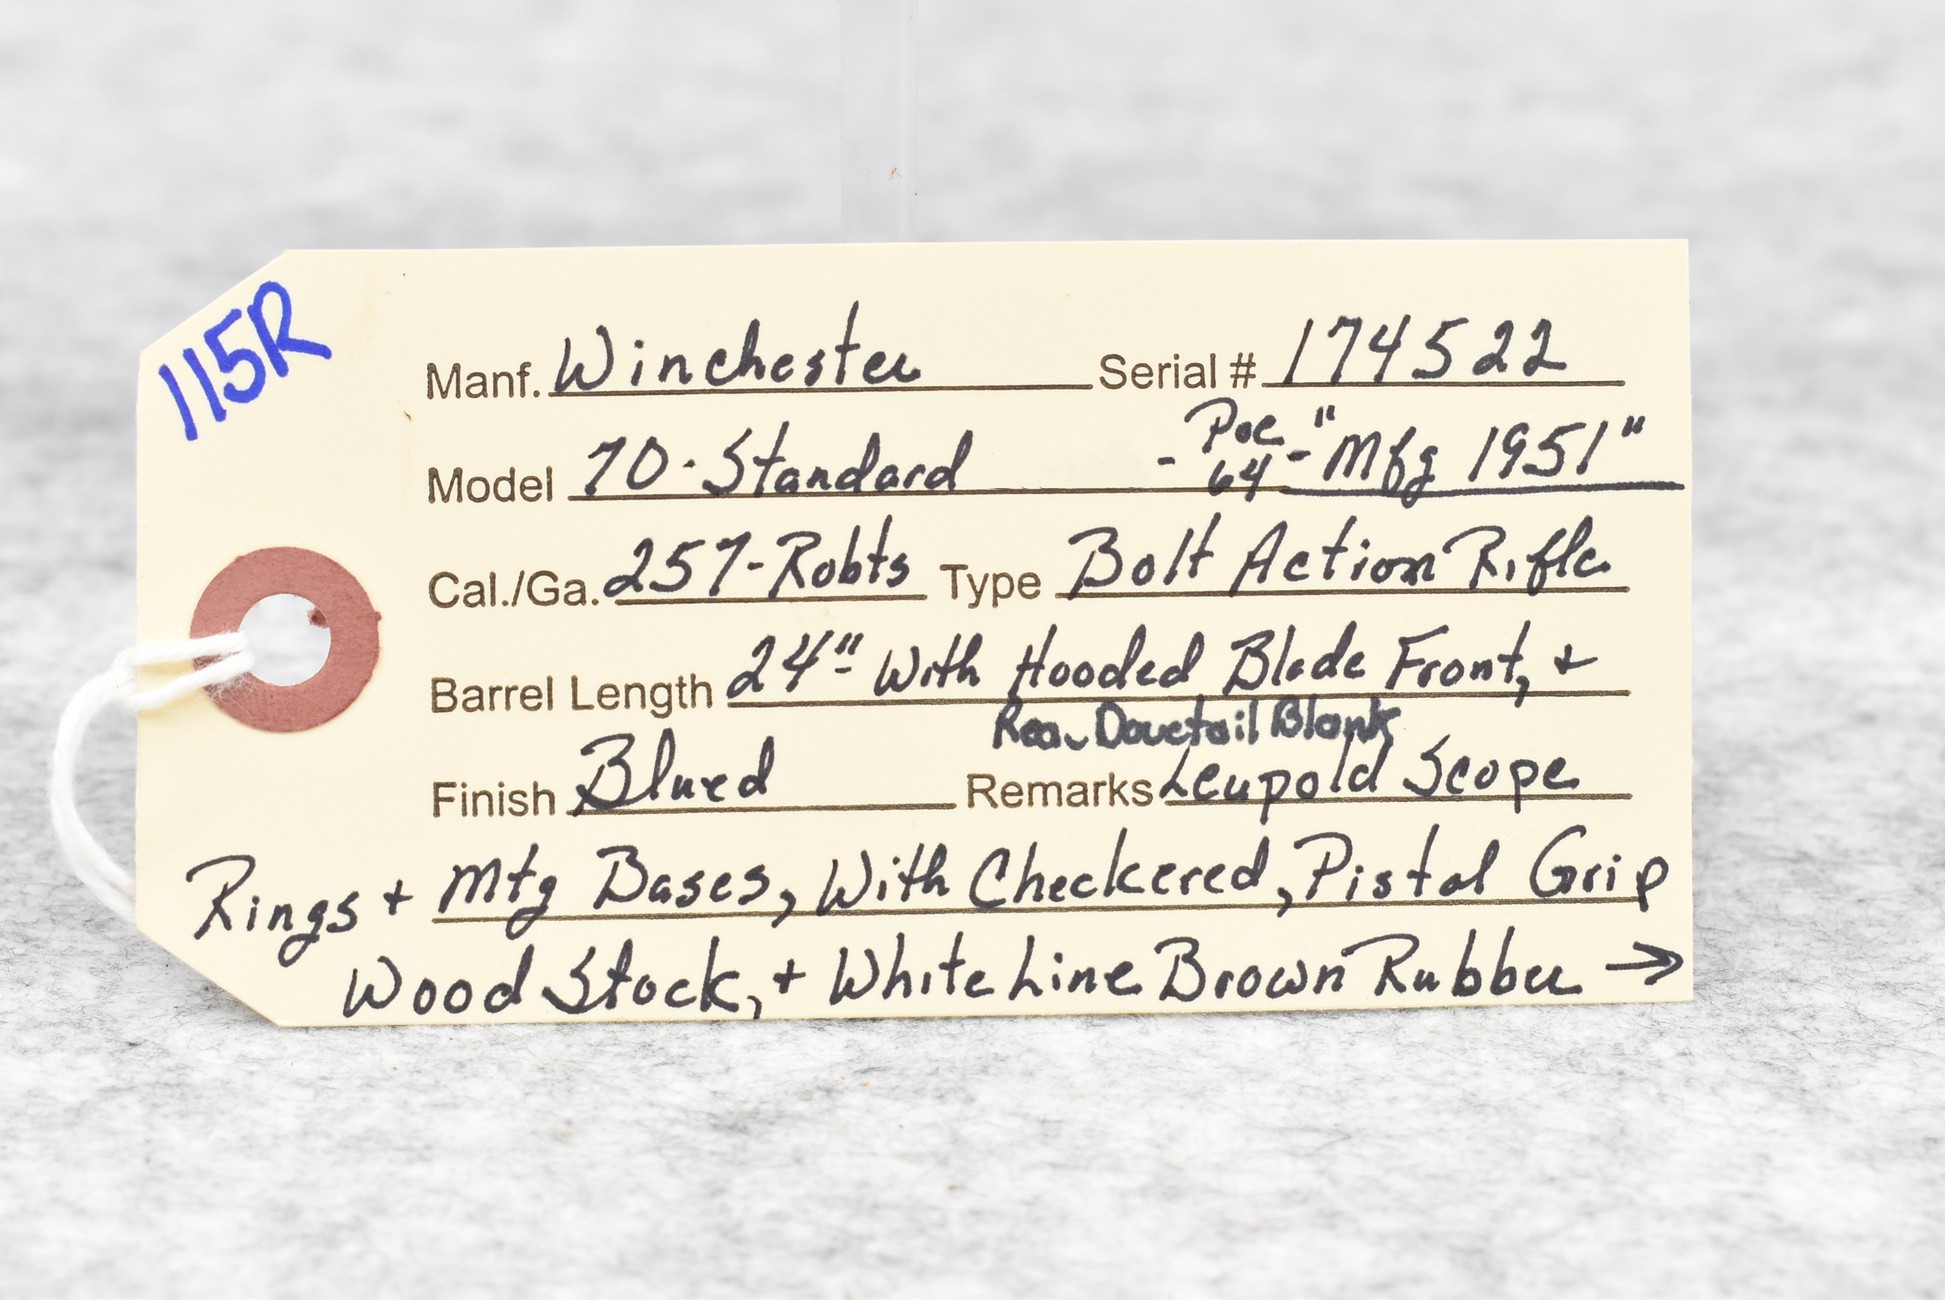 115R
Manf. Winchester Serial # 174522
Model 70-Standard - Pre 64 - "Mfg 1951"
Cal./Ga. 257-Robts Type Bolt Action Rifle
Barrel Length 24" With Hooded Blade Front, +
Rear Dovetail Blank
Finish Blued Remarks Leupold Scope
Rings + Mtg Bases, With Checkered, Pistol Grip
Wood Stock, + White Line Brown Rubber →